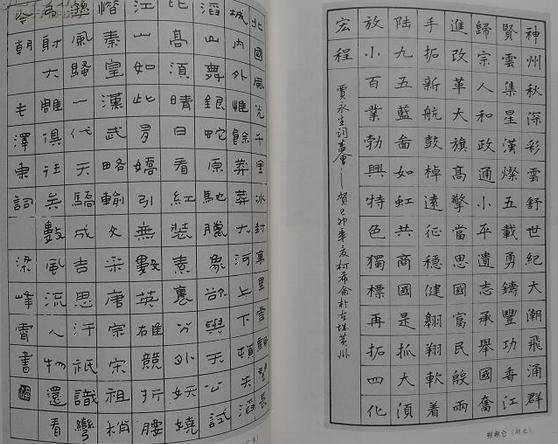 神州秋深彩雲舒世紀大潮飛涌群
賢雲集星漢燦五載勇鑄豐功香江
歸宗人和政通小平遺志承舉國奮
進改革大旗高擎當思國富民殷兩
手拓新航鼓棹遠征穩健翱翔軟着
陸九五藍圖如虹共商國是抓大須
放小百業勃興特色獨標再拓四化
宏程
北國風光千里冰封萬里雪飄望長
城內外惟餘莽莽大河上下頓失滔
滔山舞銀蛇原馳臘象欲與天公試
比高須晴日看紅裝素裹分外妖嬈
江山如此多嬌引無數英雄競折腰
惜秦皇漢武略輸文采唐宗宋祖稍
遜風騷一代天驕成吉思汗祇識彎
弓射大雕俱往矣數風流人物還看
今朝毛澤東詞梁峰霄書